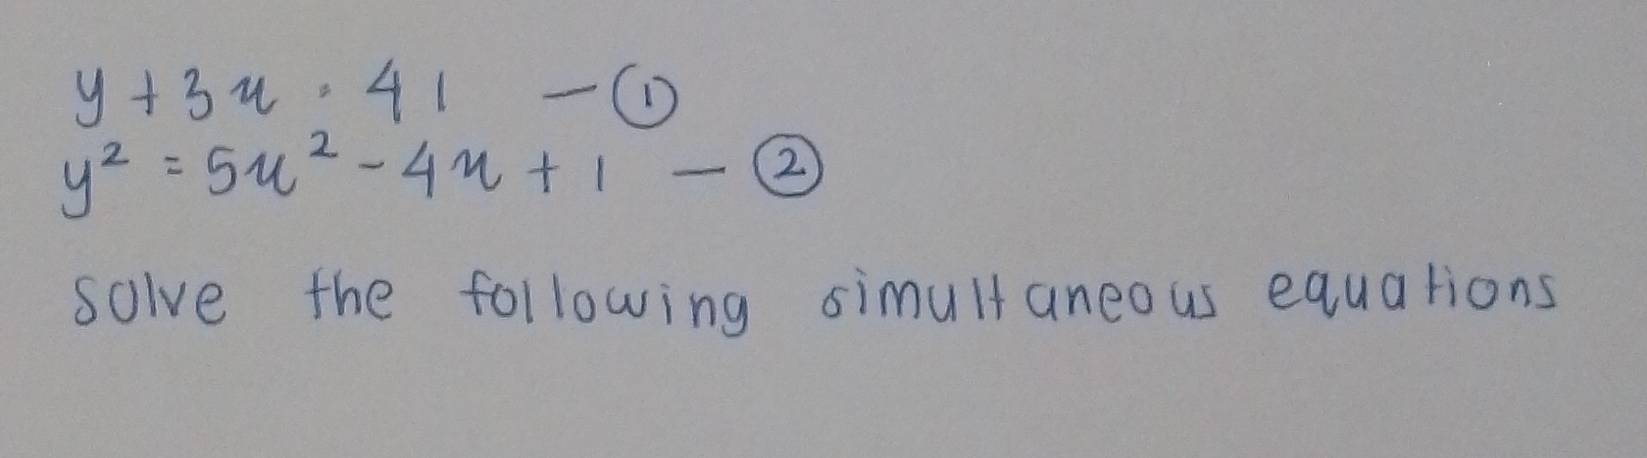 y + 3x = 41 - ①
y² = 5x² - 4x + 1 - ②
solve the following simultaneous equations